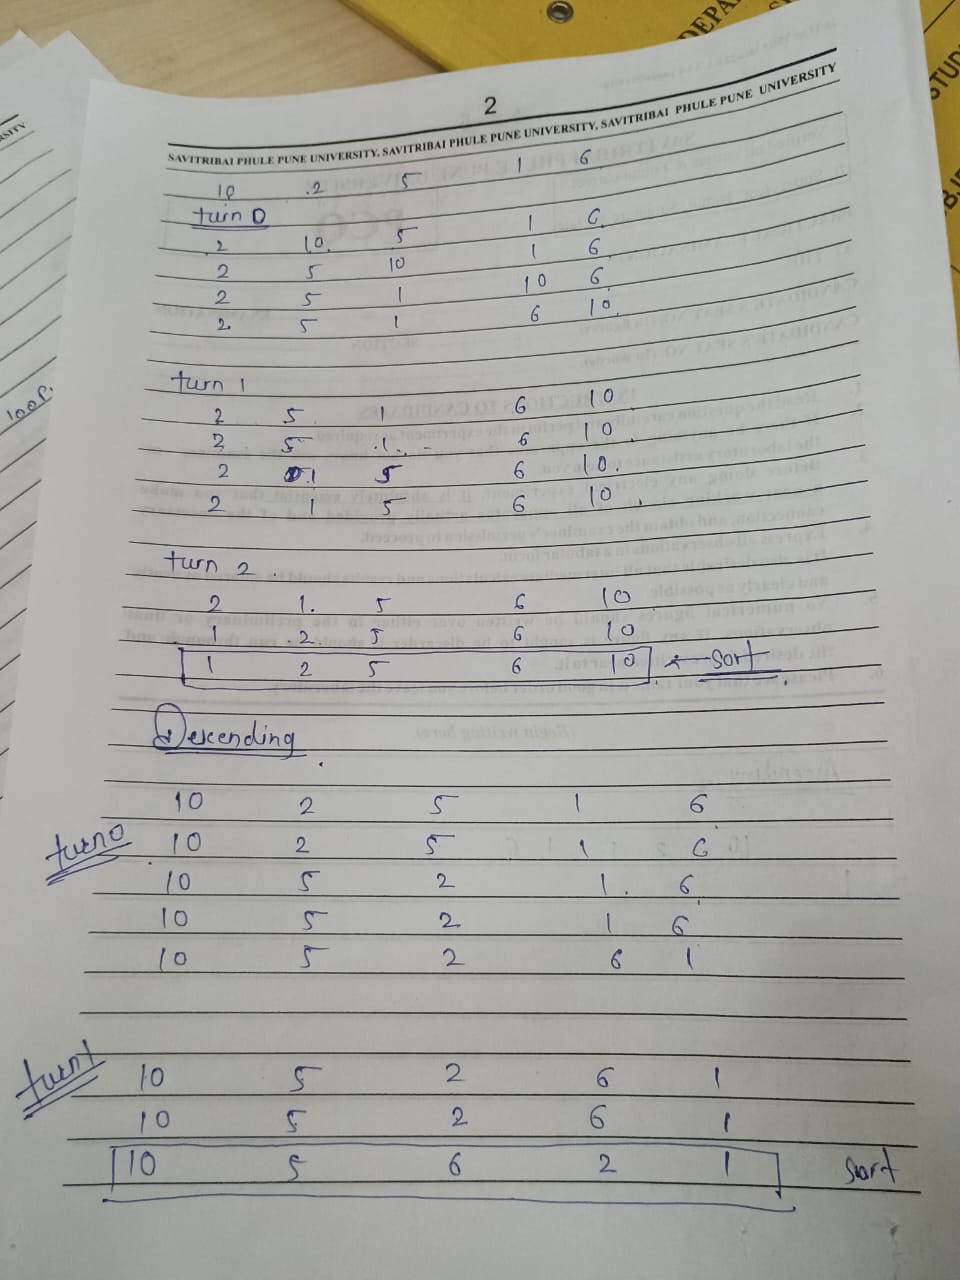 DEPA
S
STUD
BJE
RSITY
loop.
2
SAVITRIBAI PHULE PUNE UNIVERSITY, SAVITRIBAI PHULE PUNE UNIVERSITY, SAVITRIBAI PHULE PUNE UNIVERSITY
10 2 5 1 6
turn 0
2 10 5 1 6
2 5 10 1 6
2 5 1 10 6
2 5 1 6 10
turn 1
2 5 1 6 10
2 5 1 6 10
2 1 5 6 10
2 1 5 6 10
turn 2
2 1 5 6 10
1 2 5 6 10
1 2 5 6 10 ← sort
Descending
10 2 5 1 6
turn0 10 2 5 1 6
10 5 2 1 6
10 5 2 1 6
10 5 2 6 1
turn1
10 5 2 6 1
10 5 2 6 1
10 5 6 2 1 Sort